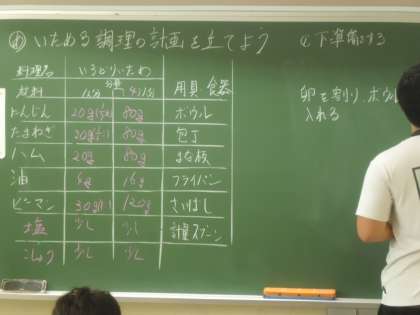 め いためる調理の計画を立てよう
料理名 いろどりいため
材料 分量 1人分 4人分 用具・食器
にんじん 20g 80g ボウル
たまねぎ 20g 80g 包丁
ハム 20g 80g まな板
油 4g 16g フライパン
ピーマン 30g 120g さいばし
塩 少し 少し 計量スプーン
こしょう 少し 少し
下準備をする
卵を割り、ボウル
入れる